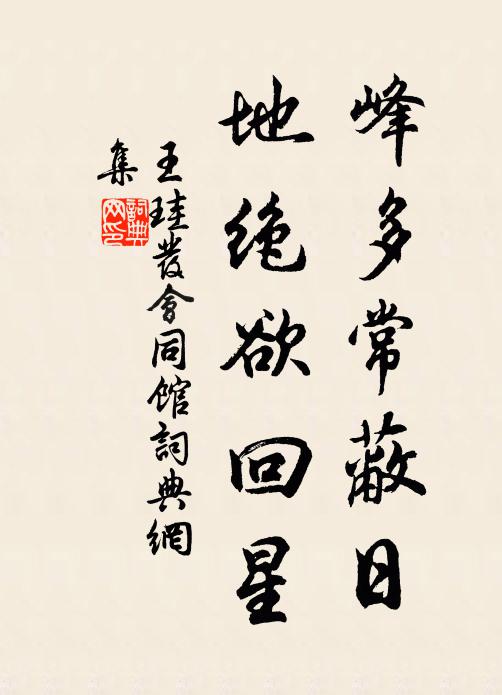 峰多常蔽日
地绝欲回星
王珪發會同馆詞典網
集
詞典网印